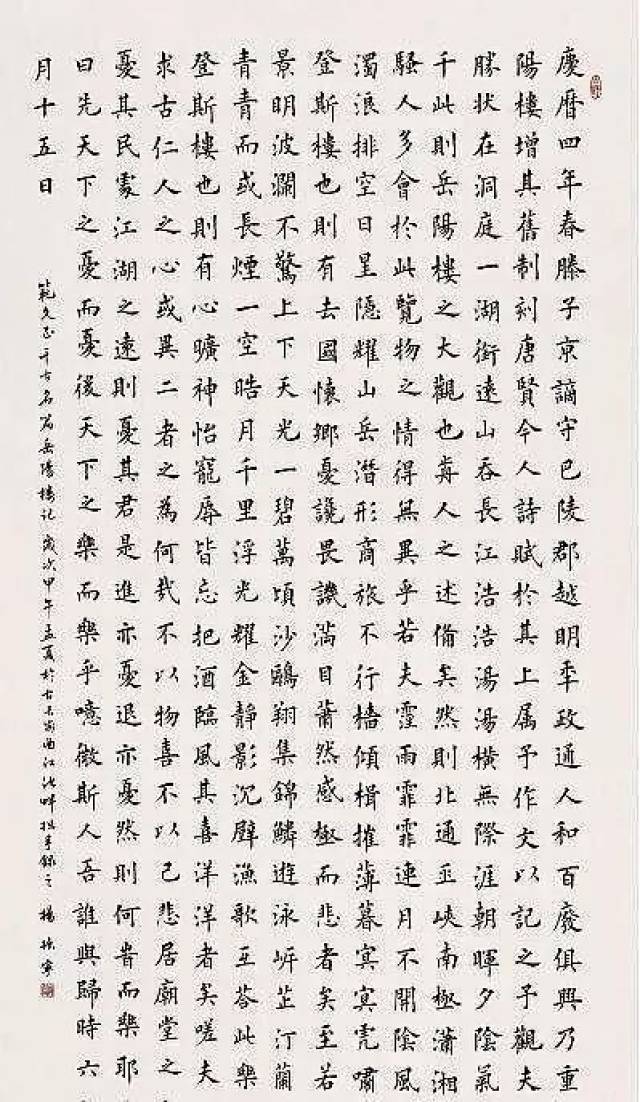 慶曆四年春滕子京謫守巴陵郡越明年政通人和百廢俱興乃重
陽樓增其舊制刻唐賢今人詩賦於其上属予作文以記之予觀夫
勝狀在洞庭一湖銜遠山吞長江浩浩湯湯橫無際涯朝暉夕陰氣
千此則岳陽樓之大觀也歬人之述備矣然則北通巫峽南極瀟湘
騷人多會於此覽物之情得無異乎若夫霪雨霏霏連月不開陰風
濁浪排空日星隱耀山岳潛形商旅不行檣傾楫摧薄暮冥冥虎嘯
登斯樓也則有去國懷鄉憂讒畏譏滿目蕭然感極而悲者矣至若
景明波瀾不驚上下天光一碧萬頃沙鷗翔集錦鱗遊泳岸芷汀蘭
青青而或長煙一空皓月千里浮光耀金靜影沉璧漁歌互答此樂
登斯樓也則有心曠神怡寵辱皆忘把酒臨風其喜洋洋者矣嗟夫
求古仁人之心或異二者之為何哉不以物喜不以己悲居廟堂之
憂其民處江湖之遠則憂其君是進亦憂退亦憂然則何時而樂耶
曰先天下之憂而憂後天下之樂而樂乎噫微斯人吾誰與歸時六
月十五日
範文正千古名篇岳陽樓記歲次甲午孟夏於古長安曲江池畔拙手錄之楊